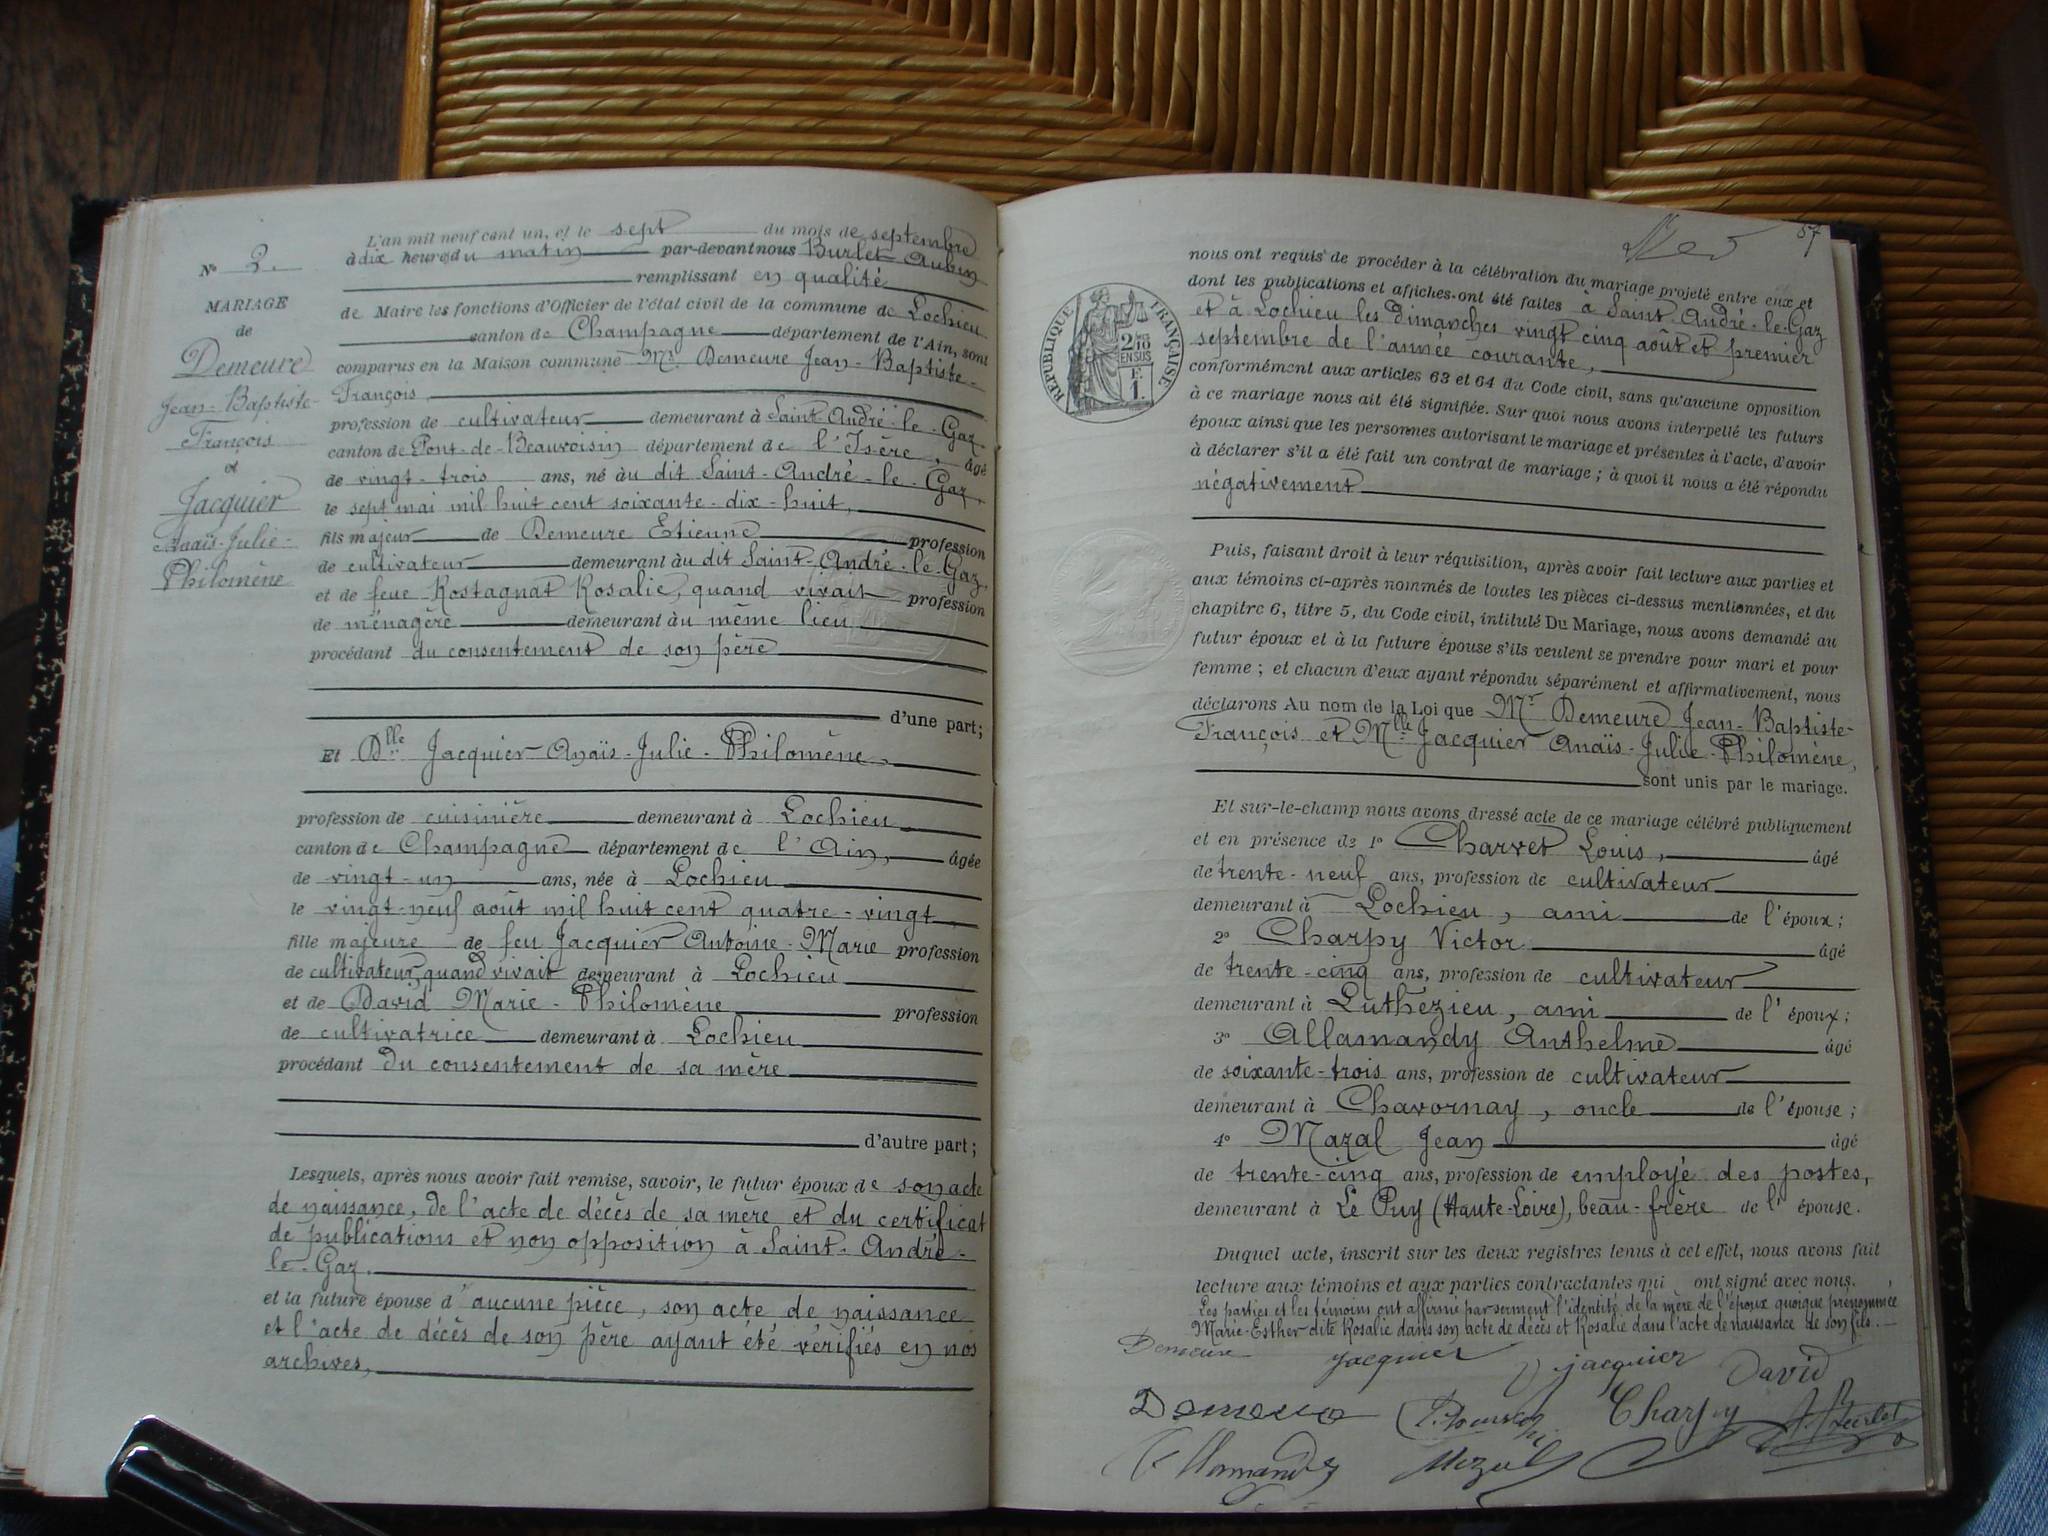 L'an mil neuf cent un, et le sept du mois de septembre
à dix heures du matin par-devant nous Burlet Aubin
remplissant en qualité
de Maire les fonctions d'Officier de l'état civil de la commune de Lochieu
canton de Champagne département de l'Ain, sont
comparus en la Maison commune Mr Demeure Jean-Baptiste-
François,
profession de cultivateur demeurant à Saint-André-le-Gaz
canton de Pont-de-Beauvoisin département de l'Isère, âgé
de vingt-trois ans, né au dit Saint-André-le-Gaz,
le sept mai mil huit cent soixante-dix-huit,
fils majeur de Demeure Etienne profession
de cultivateur demeurant au dit Saint-André-le-Gaz,
et de feue Rostagnat Rosalie, quand vivait profession
de ménagère demeurant au même lieu
procédant du consentement de son père
d'une part;
Et Dlle Jacquier Anaïs-Julie-Philomène,
profession de cuisinière demeurant à Lochieu
canton de Champagne département de l'Ain, âgée
de vingt-un ans, née à Lochieu
le vingt-neuf août mil huit cent quatre-vingt,
fille majeure de feu Jacquier Antoine-Marie profession
de cultivateur, quand vivait demeurant à Lochieu
et de David Marie-Philomène profession
de cultivatrice demeurant à Lochieu
procédant du consentement de sa mère
d'autre part;
Lesquels, après nous avoir fait remise, savoir, le futur époux de son acte
de naissance, de l'acte de décès de sa mère et du certificat
de publications et non opposition à Saint-André-
le-Gaz.
et la future épouse d'aucune pièce, son acte de naissance
et l'acte de décès de son père ayant été vérifiés en nos
archives,
N° 2.
MARIAGE
de
Demeure
Jean-Baptiste-
François
et
Jacquier
Anaïs-Julie-
Philomène
57
nous ont requis de procéder à la célébration du mariage projeté entre eux et
dont les publications et affiches ont été faites à Saint-André-le-Gaz
et à Lochieu les dimanches vingt cinq août et premier
septembre de l'année courante,
conformément aux articles 63 et 64 du Code civil, sans qu'aucune opposition
à ce mariage nous ait été signifiée. Sur quoi nous avons interpellé les futurs
époux ainsi que les personnes autorisant le mariage et présentes à l'acte, d'avoir
à déclarer s'il a été fait un contrat de mariage; à quoi il nous a été répondu
négativement
RÉPUBLIQUE FRANÇAISE
2/10
EN SUS
F.
1.
Puis, faisant droit à leur réquisition, après avoir fait lecture aux parties et
aux témoins ci-après nommés de toutes les pièces ci-dessus mentionnées, et du
chapitre 6, titre 5, du Code civil, intitulé Du Mariage, nous avons demandé au
futur époux et à la future épouse s'ils veulent se prendre pour mari et pour
femme; et chacun d'eux ayant répondu séparément et affirmativement, nous
déclarons Au nom de la Loi que Mr Demeure Jean-Baptiste-
François et Mlle Jacquier Anaïs-Julie-Philomène,
sont unis par le mariage.
Et sur-le-champ nous avons dressé acte de ce mariage célébré publiquement
et en présence de 1° Charvet Louis, âgé
de trente-neuf ans, profession de cultivateur
demeurant à Lochieu, ami de l'époux;
2° Charpy Victor âgé
de trente-cinq ans, profession de cultivateur
demeurant à Luthézieu, ami de l'époux;
3° Allamandy Anthelme âgé
de soixante-trois ans, profession de cultivateur
demeurant à Chavornay, oncle de l'épouse;
4° Mazal Jean âgé
de trente-cinq ans, profession de employé des postes,
demeurant à Le Puy (Haute-Loire), beau-frère de l'épouse.
Duquel acte, inscrit sur les deux registres tenus à cet effet, nous avons fait
lecture aux témoins et aux parties contractantes qui ont signé avec nous.
Les parties et les témoins ont affirmé par serment l'identité de la mère de l'époux quoique prénommée
Marie-Esther dite Rosalie dans son acte de décès et Rosalie dans l'acte de naissance de son fils.
Demeure Jacquier Jacquier David
Charpy A. Burlet
Allamandy Mazal